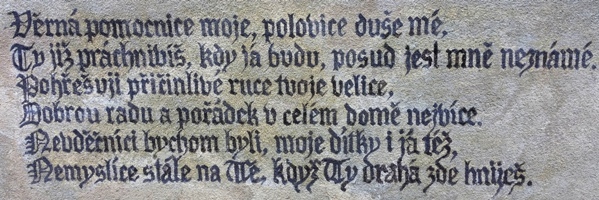 Věrná pomocnice moje, polovice duše mé.
Ty již práchnivíš, kdy já budu, posud jest mně neznámé.
Pohřešuji přičinlivé ruce tvoje velice,
Dobrou radu a pořádek v celém domě nejvíce.
Nevděčníci bychom byli, moje dítky i já též,
Nemyslíce stále na Tě, když Ty drahá zde hniješ.